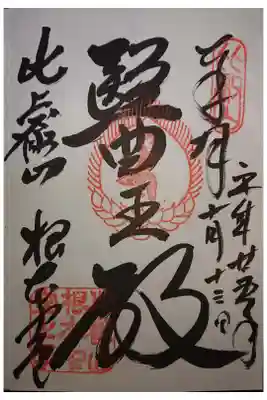 奉拝
平成廿五年
十月十三日
醫王殿
比叡山 根本中堂